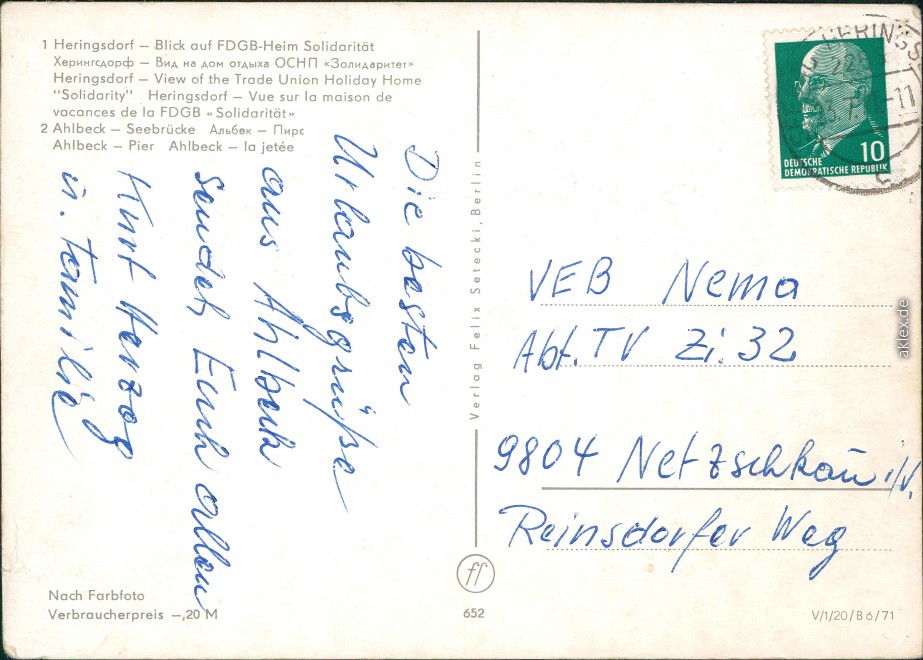 1 Heringsdorf – Blick auf FDGB-Heim Solidarität
Херингсдорф – Вид на дом отдыха ОСНП «Золидаритет»
Heringsdorf – View of the Trade Union Holiday Home
"Solidarity" Heringsdorf – Vue sur la maison de
vacances de la FDGB «Solidarität»
2 Ahlbeck – Seebrücke Альбек – Пирс
Ahlbeck – Pier Ahlbeck – la jetée
Die besten
Urlaubsgrüße
aus Ahlbeck
sendet Euch allen
Kurt Herzog
u. Familie
Nach Farbfoto
Verbraucherpreis –,20 M
Verlag Felix Setecki, Berlin
ff
652
10
DEUTSCHE
DEMOKRATISCHE REPUBLIK
VEB Nema
Abt. TV Zi. 32
9804 Netzschkau i/V.
Reinsdorfer Weg
V/1/20/B 6/71
aklex.de